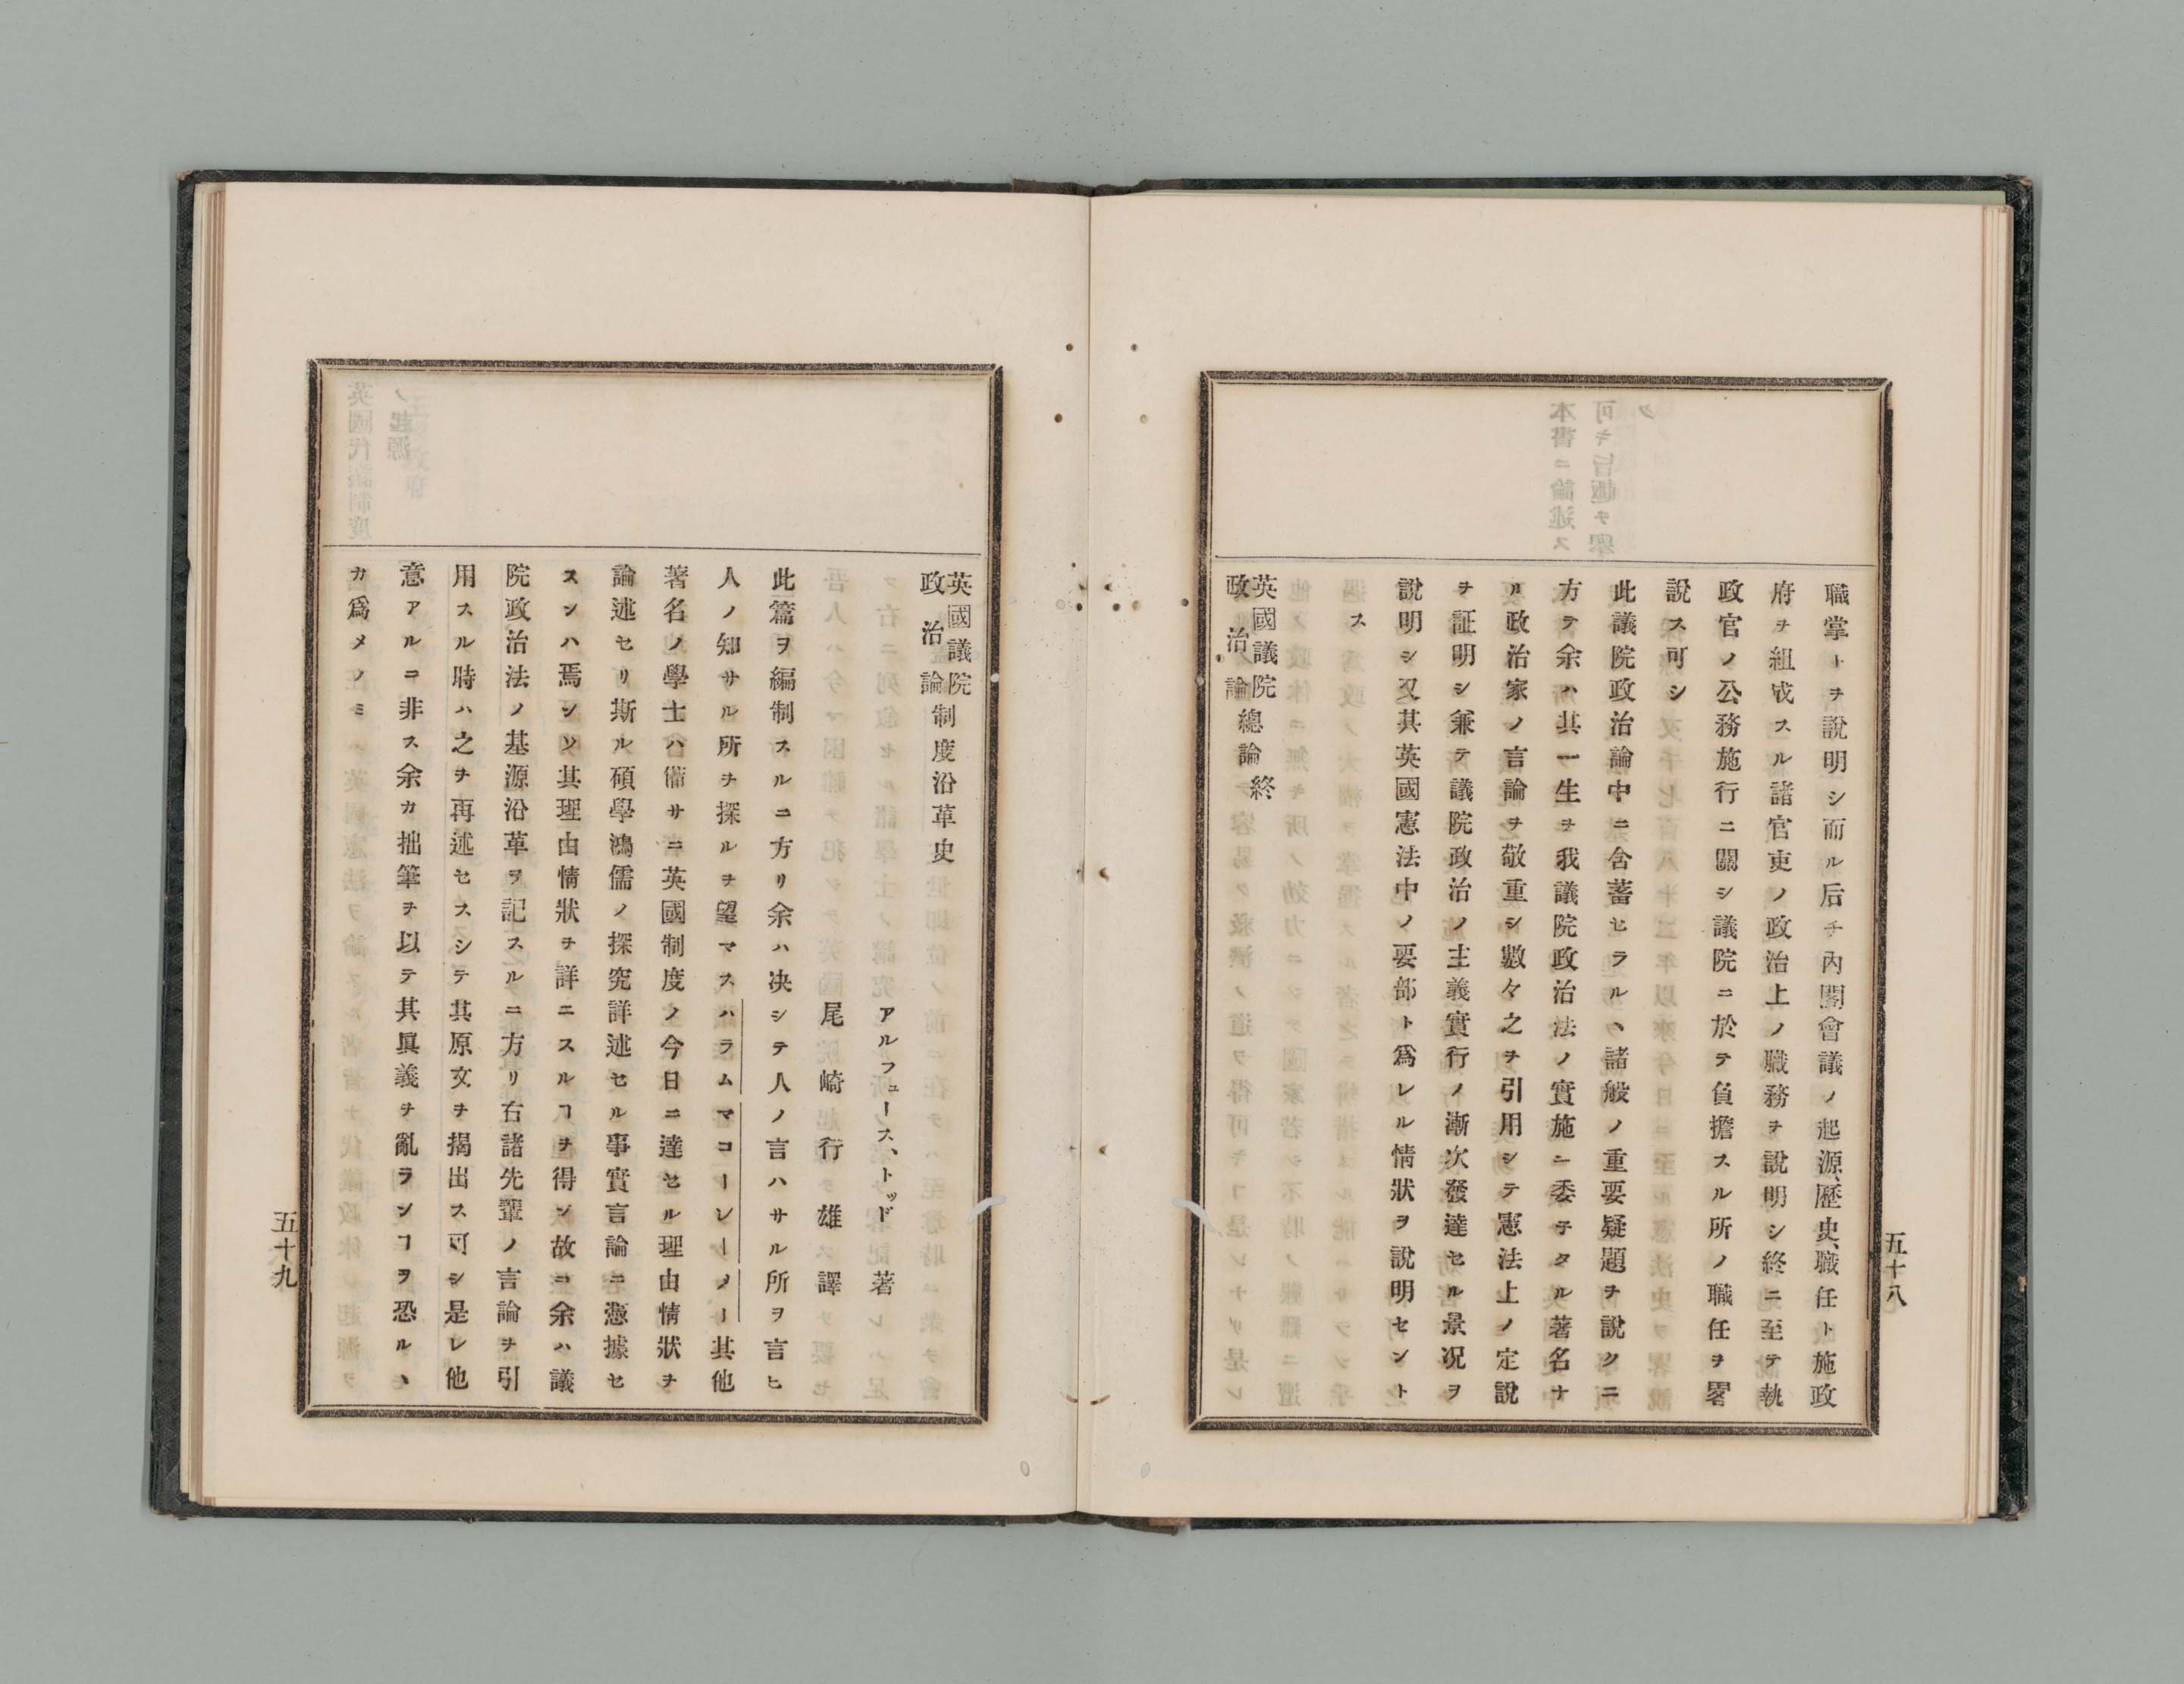 職掌トヲ說明シ而ル后チ內閣會議ノ起源、歷史、職任ト施政
府ヲ組成スル諸官吏ノ政治上ノ職務ヲ說明シ終ニ至テ執
政官ノ公務施行ニ關シ議院ニ於テ負擔スル所ノ職任ヲ畧
說ス可シ
此議院政治論中ニ含蓄セラルヽ諸般ノ重要疑題ヲ說クニ
方テ余ハ其一生ヲ我議院政治法ノ實施ニ委子タル著名ナ
ル政治家ノ言論ヲ敬重シ數々之ヲ引用シテ憲法上ノ定說
ヲ証明シ兼テ議院政治ノ主義實行ノ漸次發達セル景况ヲ
說明シ又其英國憲法中ノ要部ト爲レル情狀ヲ說明セント
ス
英國議院
政治論
總論終
五十八
英國議院
政治論
制度沿革史
アルフユース、トッド著
尾崎行雄譯
此篇ヲ編制スルニ方リ余ハ决シテ人ノ言ハサル所ヲ言ヒ
人ノ知サル所ヲ探ルヲ望マスハラムマコーレーメー其他
著名ノ學士ハ備サニ英國制度ノ今日ニ達セル理由情狀ヲ
論述セリ斯ル碩學鴻儒ノ探究詳述セル事實言論ニ憑據セ
スンハ焉ンソ其理由情狀ヲ詳ニスルヿヲ得ン故ニ余ハ議
院政治法ノ基源沿革ヲ記スルニ方リ右諸先輩ノ言論ヲ引
用スル時ハ之ヲ再述セスシテ其原文ヲ揭出ス可シ是レ他
意アルニ非ス余カ拙筆ヲ以テ其眞義ヲ亂ランヿヲ恐ルヽ
カ爲メノミ
五十九